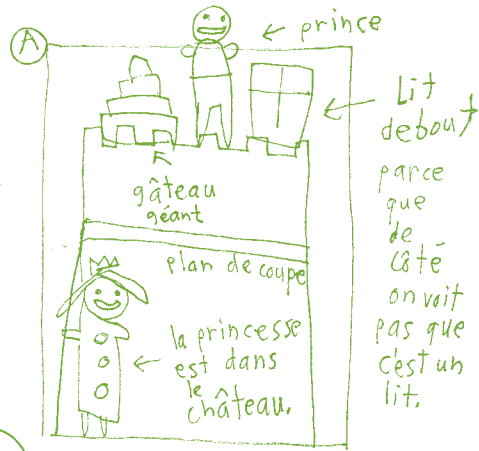 A
prince
Lit
debout
parce
que
de
côté
on voit
pas que
c'est un
lit.
gâteau
géant
plan de coupe
la princesse
est dans
le
château.